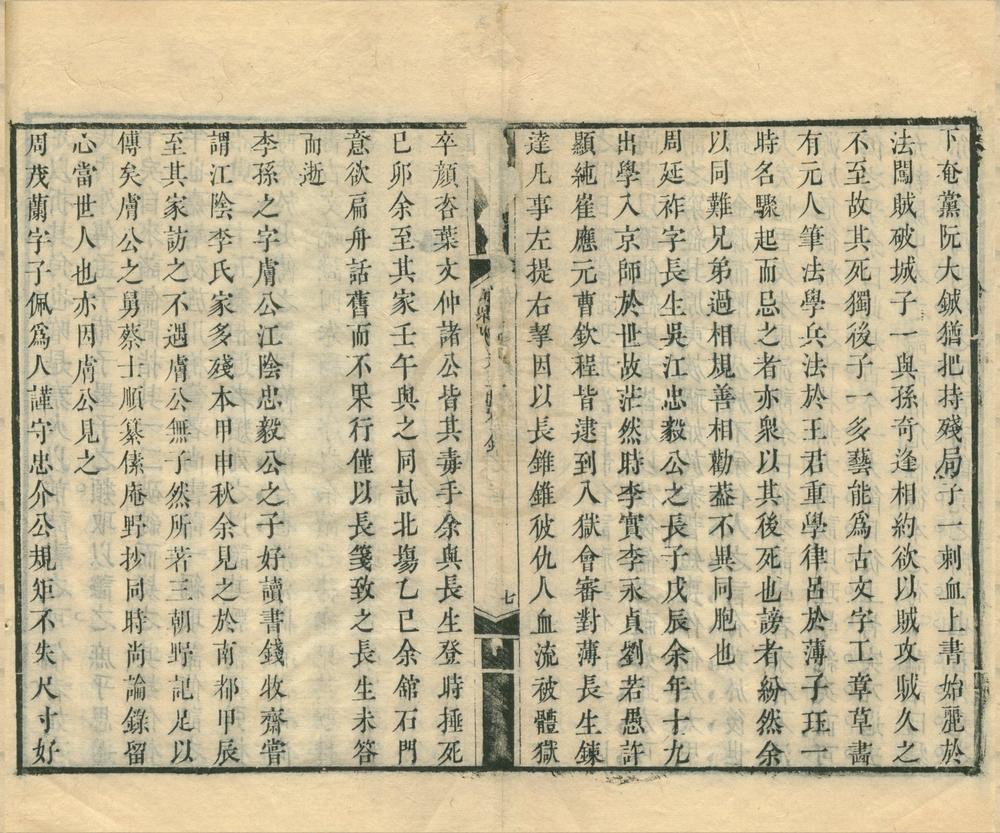 下奄黨阮大鋮猶把持殘局子一刺血上書始麗於
法闖賊破城子一與孫奇逢相約欲以賊攻賊久之
不至故其死獨後子一多藝能爲古文字工章草畵
有元人筆法學兵法於王君重學律呂於薄子珏一
時名驟起而忌之者亦衆以其後死也謗者紛然余
以同難兄弟過相規善相勸葢不異同胞也
周延祚字長生吳江忠毅公之長子戊辰余年十九
出學入京師於世故茫然時李實李永貞劉若愚許
顯純崔應元曹欽程皆逮到入獄會審對薄長生錬
達凡事左提右挈因以長錐錐彼仇人血流被體獄
七
卒顔咨葉文仲諸公皆其毒手余與長生登時捶死
已卯余至其家壬午與之同試北塲乙巳余舘石門
意欲扁舟話舊而不果行僅以長箋致之長生未答
而逝
李孫之字膚公江陰忠毅公之子好讀書錢牧齋嘗
謂江陰李氏家多殘本甲申秋余見之於南都甲辰
至其家訪之不遇膚公無子然所著三朝野記足以
傳矣膚公之舅蔡士順纂傃庵野抄同時尚論錄留
心當世人也亦因膚公見之
周茂蘭字子佩爲人謹守忠介公規矩不失尺寸好